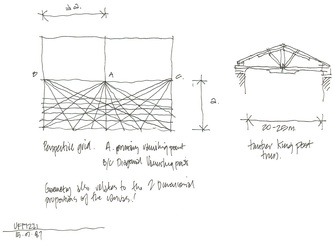 √2.
B
A
C.
2.
Perspective grid. A. primary vanishing point
B/C Diagonal Vanishing points
Geometry also relates to the 2 Dimensional
proportions of the canvas!
20-25m
timber King post
truss.